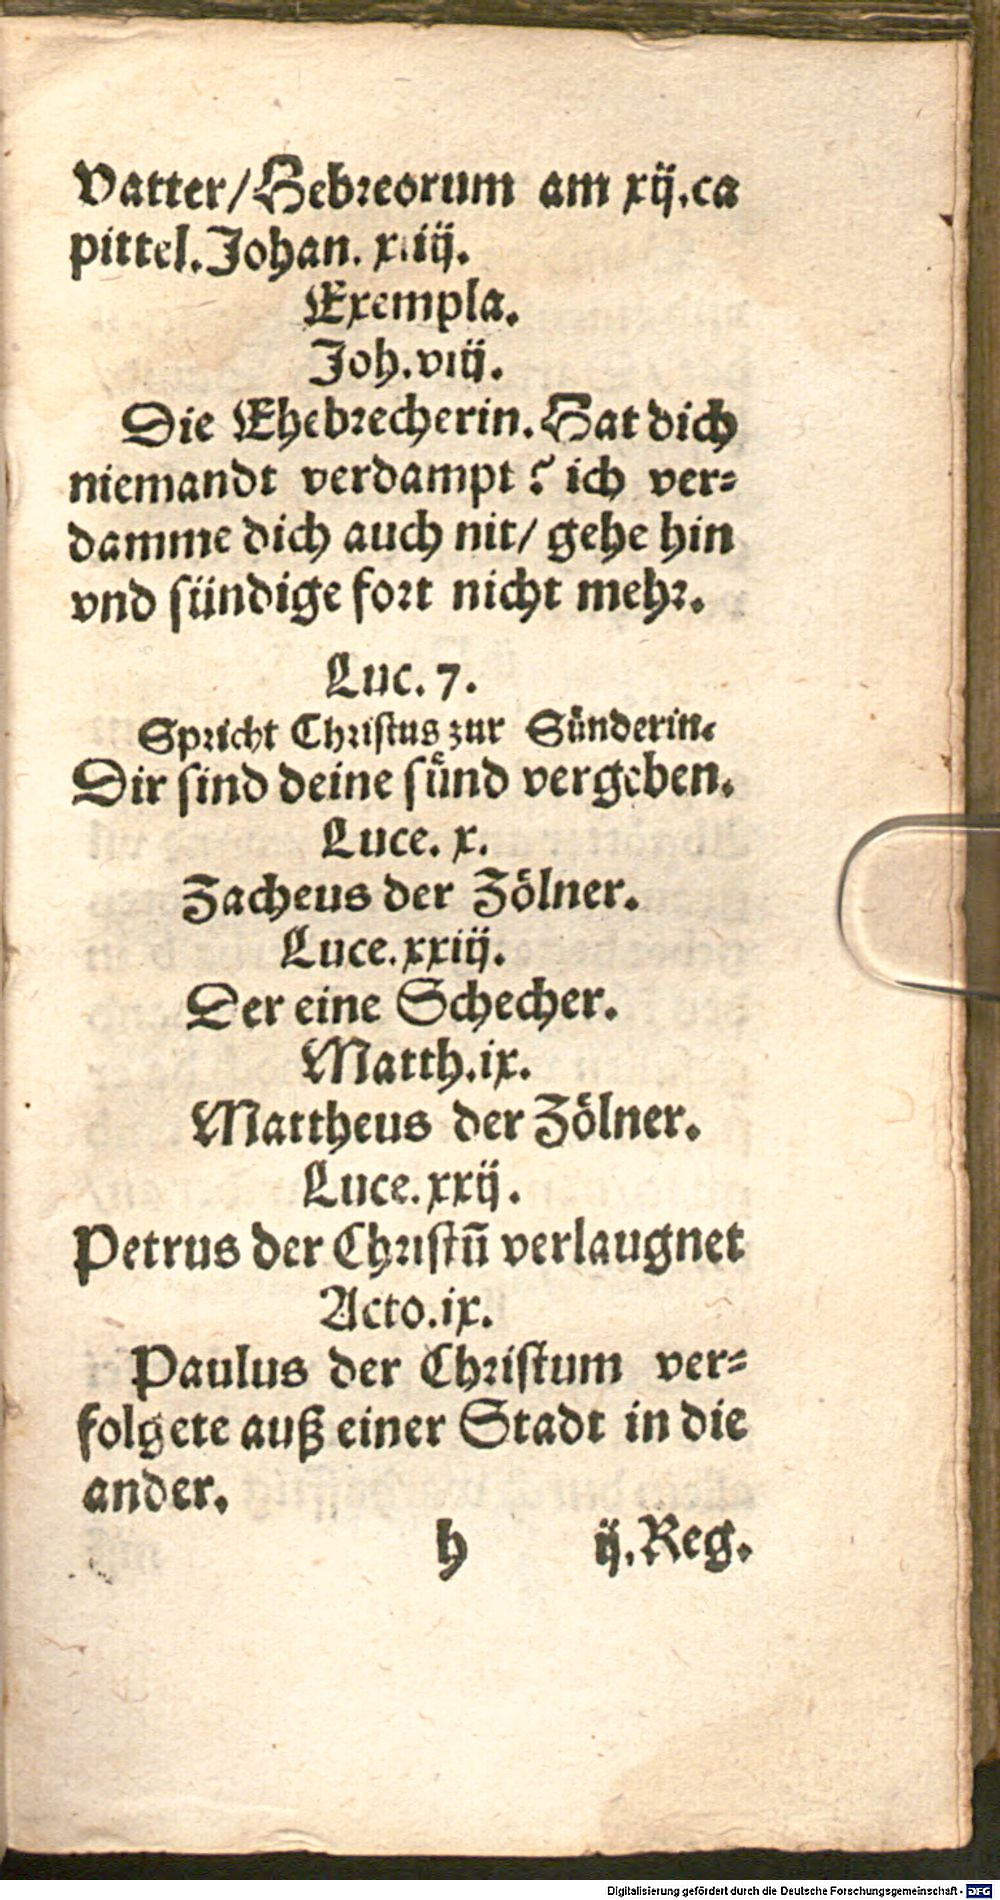 Vatter/Hebreorum am xij.ca
pittel.Johan. xiij.
Exempla.
Joh.viij.
Die Ehebrecherin.Hat dich
niemandt verdampt? ich ver=
damme dich auch nit/ gehe hin
vnd sündige fort nicht mehr.
Luc. 7.
Spricht Christus zur Sünderin.
Dir sind deine sünd vergeben.
Luce. x.
Zacheus der Zölner.
Luce.xxiij.
Der eine Schecher.
Matth.ix.
Mattheus der Zölner.
Luce.xxij.
Petrus der Christū verlaugnet
Acto.ix.
Paulus der Christum ver=
folgete auß einer Stadt in die
ander.
h ij.Reg.
Digitalisierung gefördert durch die Deutsche Forschungsgemeinschaft - DFG